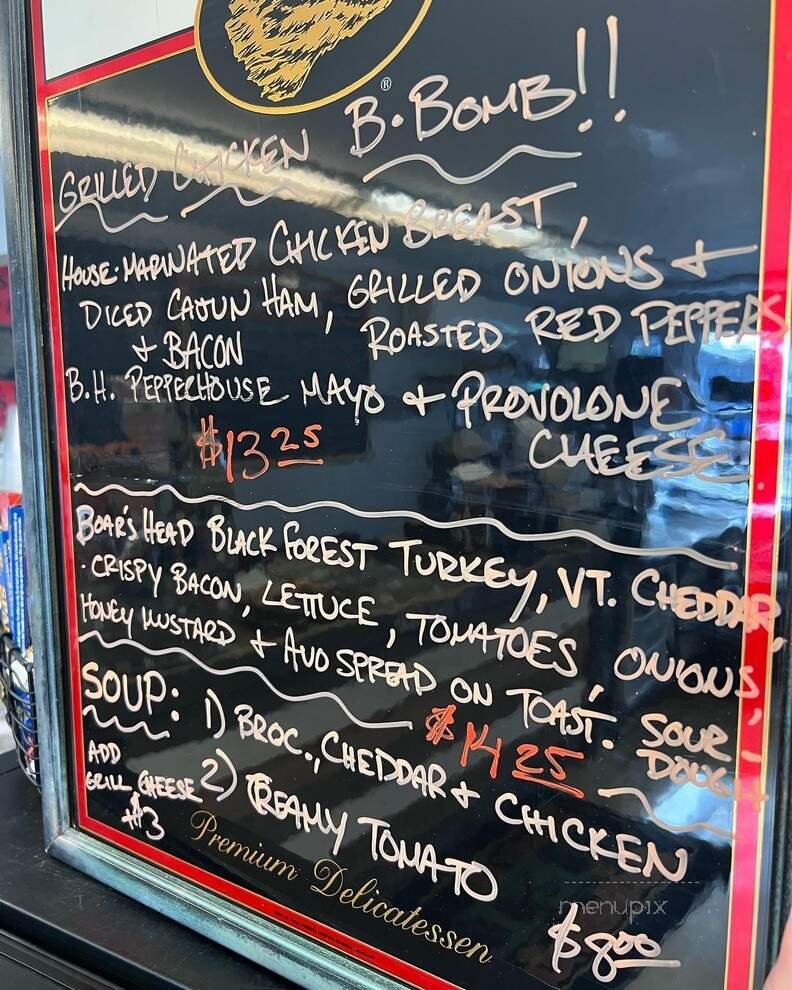 ®
GRILLED CHICKEN B·BOMB!!
HOUSE·MARINATED CHICKEN BREAST,
DICED CAJUN HAM, GRILLED ONIONS +
+ BACON ROASTED RED PEPPERS
B.H. PEPPERHOUSE MAYO + PROVOLONE
CHEESE
$13 25
BOAR'S HEAD BLACK FOREST TURKEY, VT. CHEDDAR,
·CRISPY BACON, LETTUCE, TOMATOES, ONIONS,
HONEY MUSTARD + AVO SPREAD ON TOAST. SOUR-
DOUGH
$14 25
SOUP: 1) BROC., CHEDDAR + CHICKEN
ADD
GRILL CHEESE 2) CREAMY TOMATO
+$3
$8 00
Premium Delicatessen
menupix